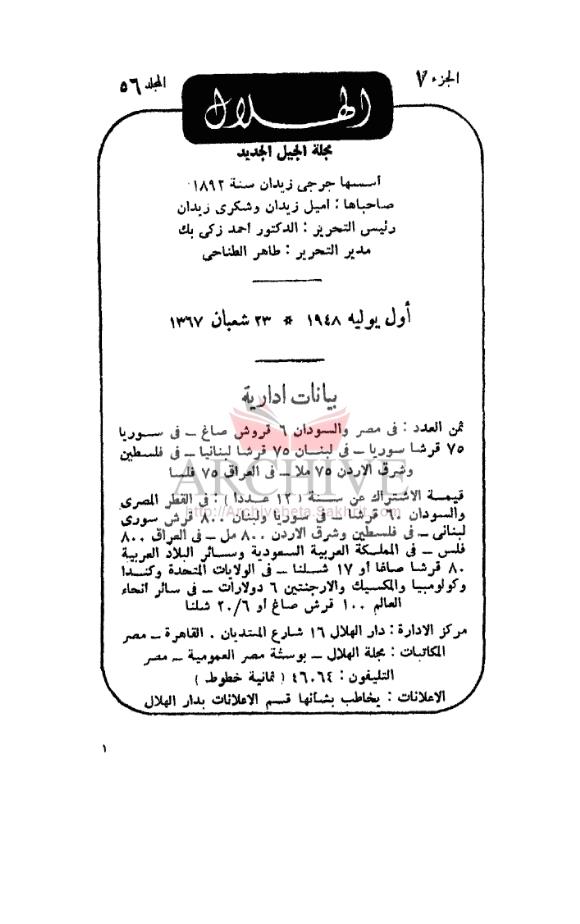 الجزء ٧
المجلد ٥٦
الهلال
مجلة الجيل الجديد
أسسها جرجى زيدان سنة ١٨٩٢
صاحباها : اميل زيدان وشكرى زيدان
رئيس التحرير : الدكتور احمد زكى بك
مدير التحرير : طاهر الطناحى
أول يوليه ١٩٤٨ * ٢٣ شعبان ١٣٦٧
بيانات ادارية
ثمن العدد : فى مصر والسودان ٦ قروش صاغ – فى سوريا
٧٥ قرشا سوريا – فى لبنان ٧٥ قرشا لبنانيا – فى فلسطين
وشرق الاردن ٧٥ ملا – فى العراق ٧٥ فلسا
ARCHIVE
قيمة الاشتراك عن سنة ( ١٢ عددا ) : فى القطر المصرى
http://Archivebeta.Sakhrit.com
والسودان ٦٠ قرشا – فى سوريا ولبنان ٨٠٠ قرش سورى
لبنانى – فى فلسطين وشرق الاردن ٨٠٠ مل – فى العراق ٨٠٠
فلس – فى المملكة العربية السعودية وسائر البلاد العربية
٨٠ قرشا صاغا أو ١٧ شلنا – فى الولايات المتحدة وكندا
وكولومبيا والمكسيك والارجنتين ٦ دولارات – فى سائر انحاء
العالم ١٠٠ قرش صاغ أو ٢٠/٦ شلنا
مركز الادارة : دار الهلال ١٦ شارع المبتديان . القاهرة – مصر
المكاتبات : مجلة الهلال – بوستة مصر العمومية – مصر
التليفون : ٤٦٠٦٤ ( ثمانية خطوط )
الاعلانات : يخاطب بشأنها قسم الاعلانات بدار الهلال
١